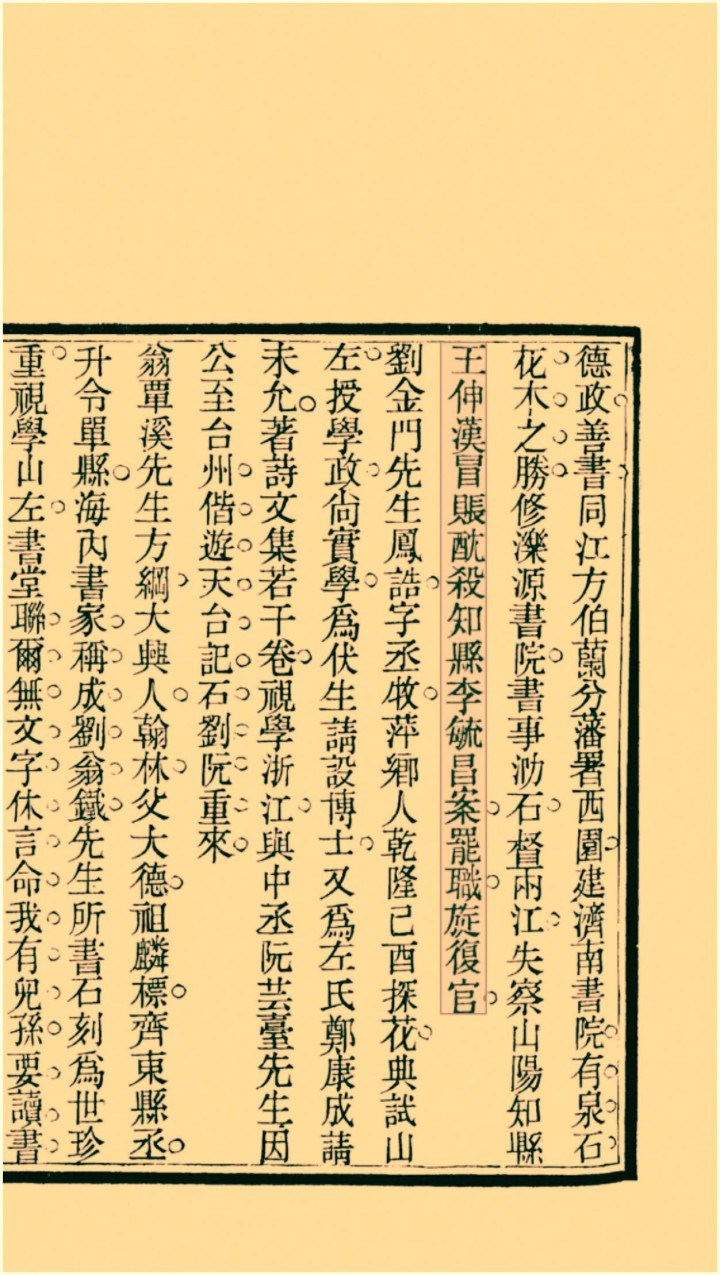 德政善書同江方伯蘭分藩署西園建濟南書院有泉石
花木之勝修濼源書院書事泐石督兩江失察山陽知縣
王伸漢冒賬酖殺知縣李毓昌案罷職旋復官
劉金門先生鳳誥字丞牧萍鄉人乾隆己酉探花典試山
左授學政尚實學爲伏生請設博士又爲左氏鄭康成請
未允著詩文集若干卷視學浙江與中丞阮芸臺先生因
公至台州偕遊天台記石劉阮重來
翁覃溪先生方綱大興人翰林父大德祖麟標齊東縣丞
升令單縣海內書家稱成劉翁鐵先生所書石刻爲世珍
重視學山左書堂聯爾無文字休言命我有兒孫要讀書